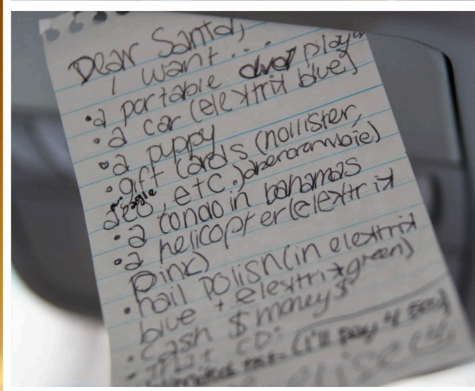 Dear Santa,
I want...
•a portable dvd player
•a car (elextrik blue)
•a puppy
•gift cards (hollister,
aeo, eagle, etc.) abercrombie)
•a condo in bahamas
•a helicopter (elextrik
pink)
•nail polish (in elextrik
blue + elextrik green)
•cash $money$
CD:
(I'll pay 4